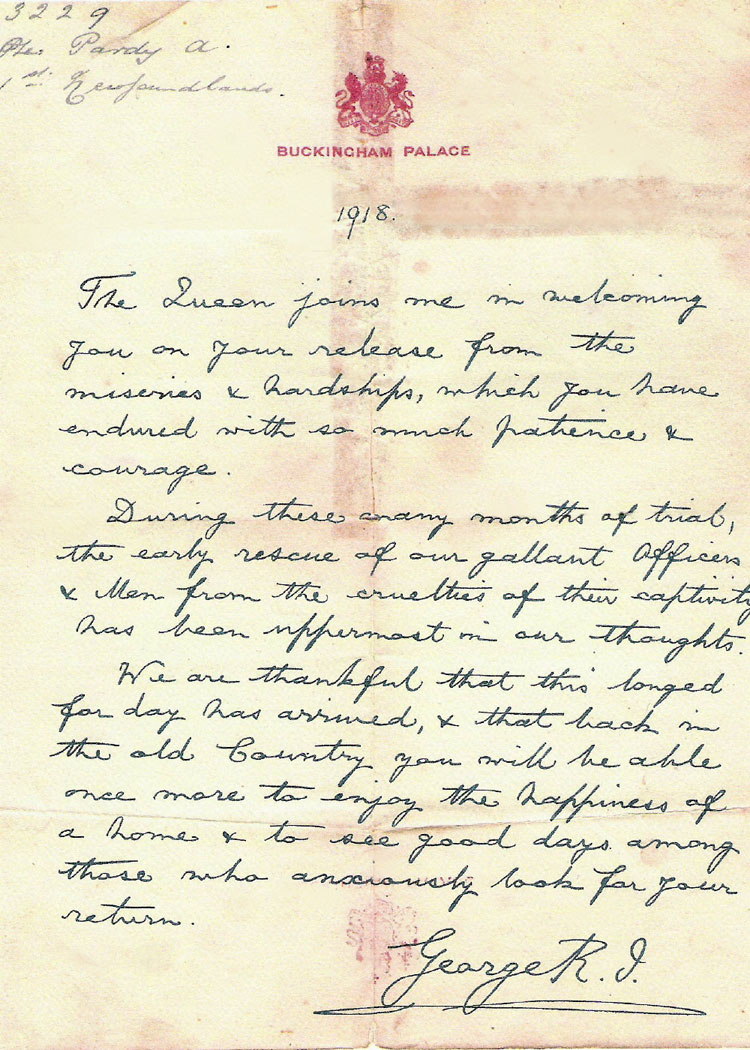 3229
Pte. Pardy A.
1st Newfoundlands.
BUCKINGHAM PALACE
1918.
The Queen joins me in welcoming
you on your release from the
miseries & hardships, which you have
endured with so much patience &
courage.
During these many months of trial,
the early rescue of our gallant Officers
& Men from the cruelties of their captivity
has been uppermost in our thoughts.
We are thankful that this longed
for day has arrived, & that back in
the old Country you will be able
once more to enjoy the happiness of
a home & to see good days among
those who anxiously look for your
return.
George R.I.